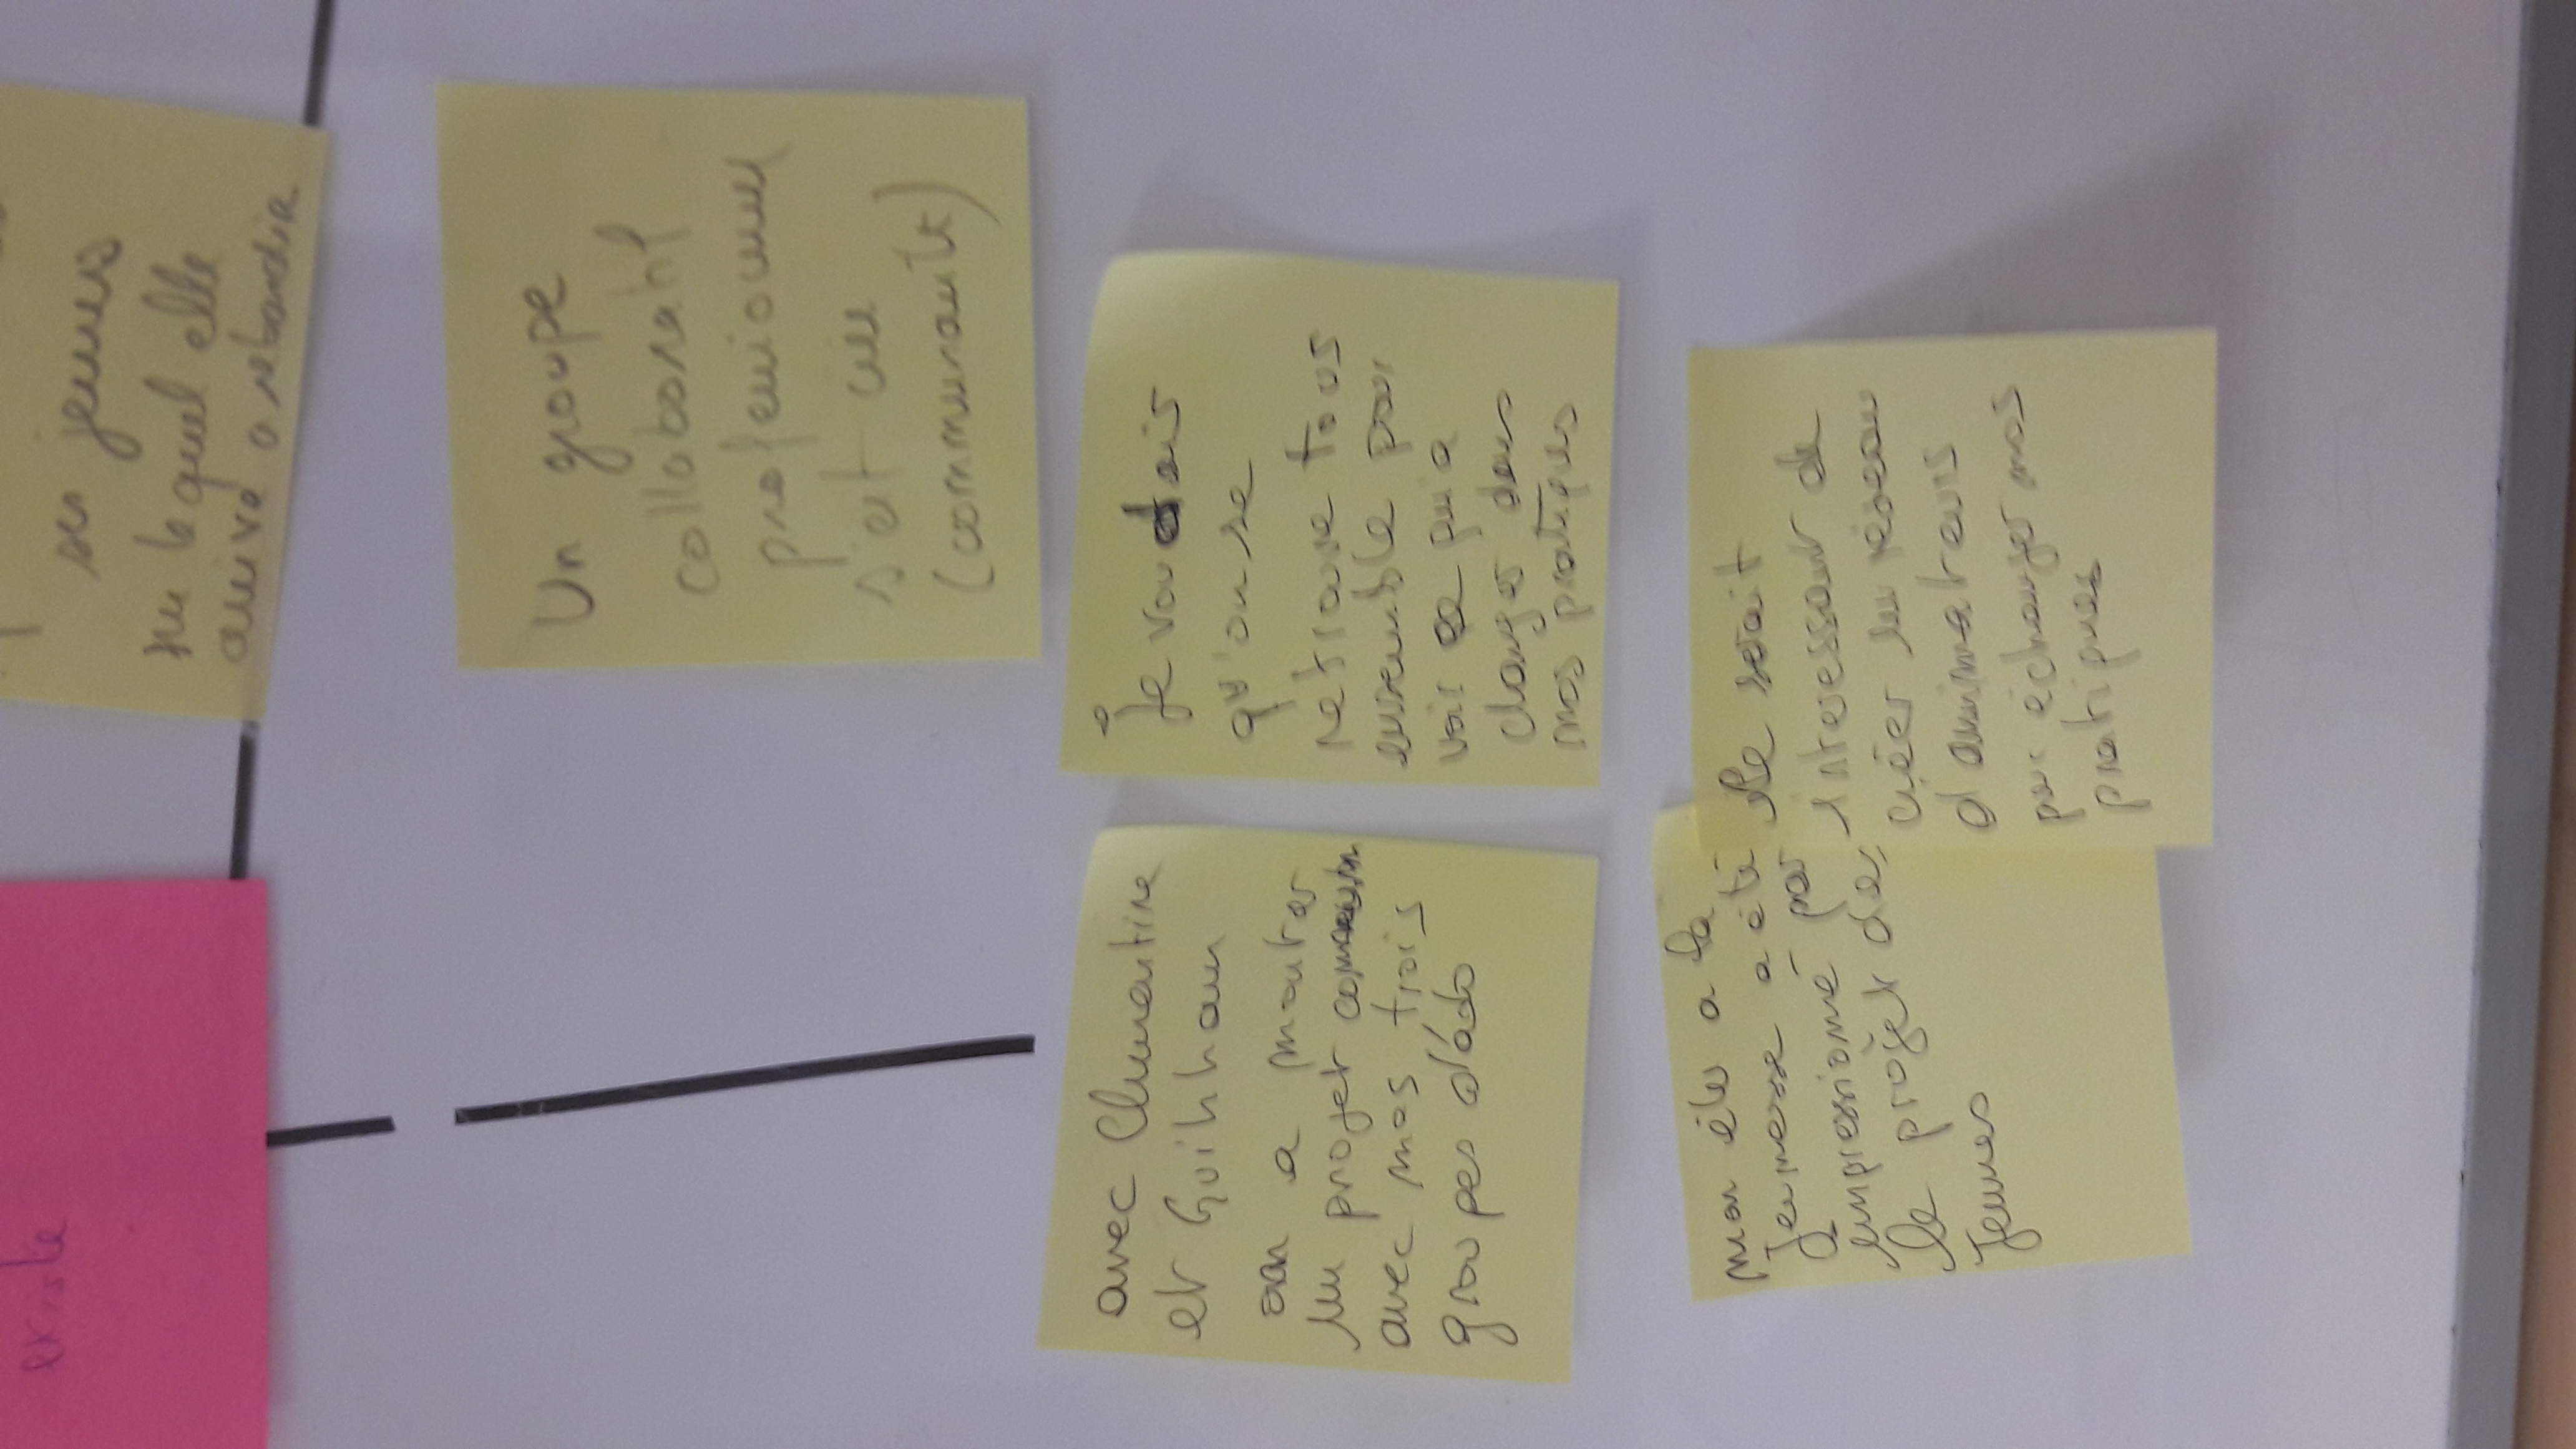 existe
ses jeunes
sur lequel elle
arrive a rebondir
Un groupe
collaboratif
professionnel
s'est créé
(communauté)
avec Clementine
et
on a monter
un projet commun
avec mes trois
groupes d'ado
Je voudais
qu'on se
retrouve tous
ensemble pour
voir ce qui a
changer dans
nos pratiques
mon élu a la
Jeunesse a été
impressionné par
le projet des
Jeunes
Ile serait
interessant de
créer un réseau
d'animateurs
pour échanger nos
pratiques